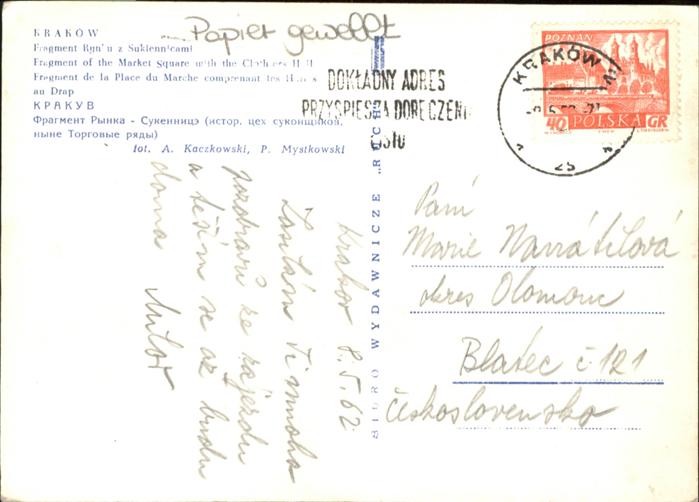 Papier gewellt
KRAKÓW
Fragment Rynku z Sukiennicami
Fragment of the Market Square with the Clothiers Hall
Fragment de la Place du Marche comprenant les Halles
au Drap
КРАКУВ
Фрагмент Рынка - Сукеннице (истор. цех суконщиков,
ныне Торговые ряды)
fot. A. Kaczkowski, P. Mystkowski
DOKŁADNY ADRES
PRZYSPIESZA DORĘCZENIE
LISTU
KRAKÓW
25
POZNAŃ
40 POLSKA GR
BIURO WYDAWNICZE „RUCH"
Krakov 8.5.62
Zasílám Ti mnoho
pozdravů ze zájezdu
a těším se až budu
doma
Paní
Marie Navrátilová
okres Olomouc
Blatec č 121
Československo